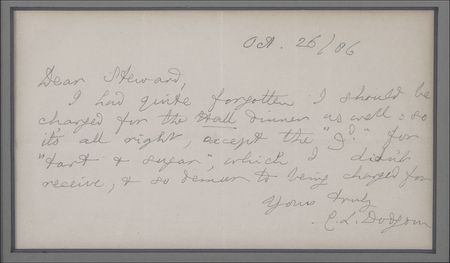 Oct. 26/86
Dear Steward,
I had quite forgotten I should be
charged for the Hall dinner as well: so
it's all right, except the "9d." for
"tart & sugar", which I didn't
receive, & so demur to being charged for
Yours truly
C. L. Dodgson